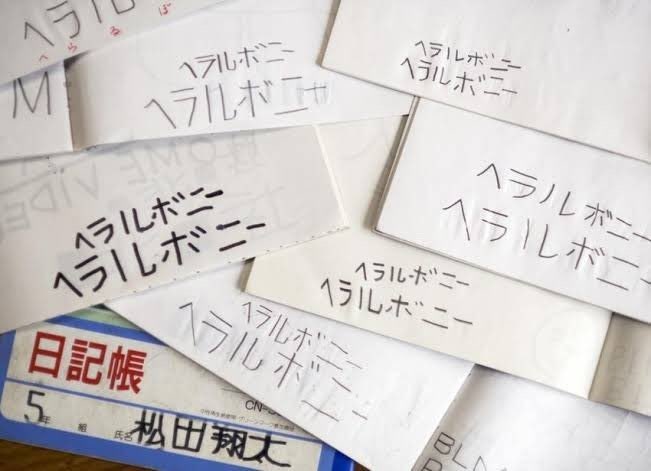 ヘラル
へらるぼ
M
ヘラルボニー
ヘラルボニー
ヘラルボニー
ヘラルボニー
ヘラルボニー
ヘラルボニー
HOME VIDEO
ヘラルボニー
ヘラルボニー
ヘラルボニー
ヘラルボニー
ヘラルボニー
ヘラルボニー
日記帳
CN-
5年 組 氏名 松田翔太
BLA